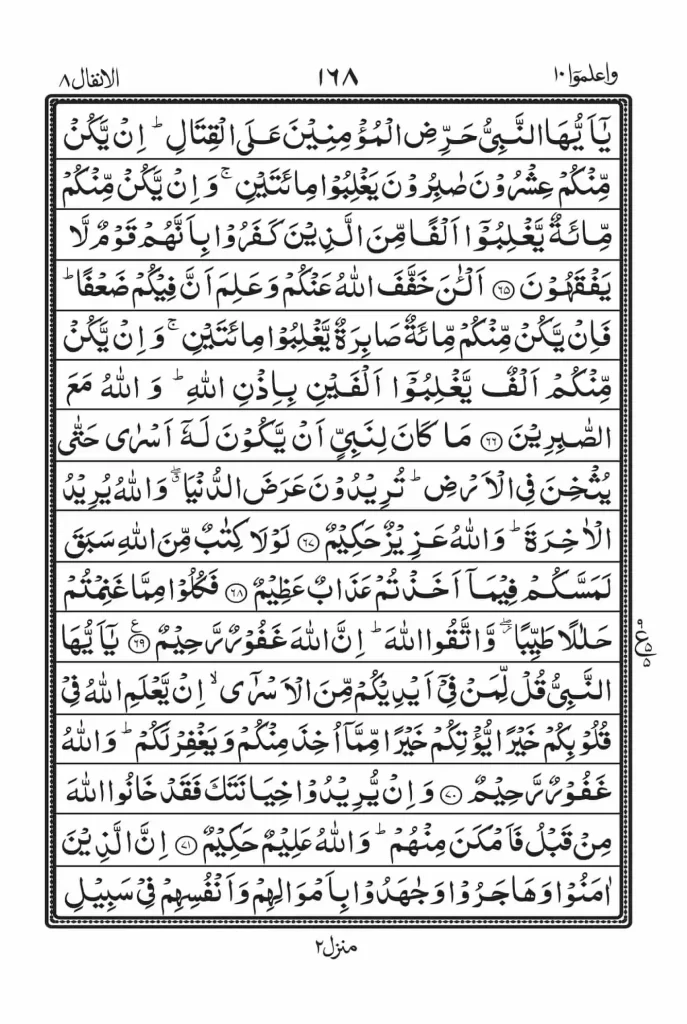 واعلموٓا ١٠ ١٦٨ الانفال ٨
يٰۤاَيُّهَا النَّبِيُّ حَرِّضِ الْمُؤْمِنِيْنَ عَلَى الْقِتَالِ ؕ اِنْ يَّكُنْ
مِّنْكُمْ عِشْرُوْنَ صٰبِرُوْنَ يَغْلِبُوْا مِائَتَيْنِ ۚ وَاِنْ يَّكُنْ مِّنْكُمْ
مِّائَةٌ يَّغْلِبُوْۤا اَلْفًا مِّنَ الَّذِيْنَ كَفَرُوْا بِاَنَّهُمْ قَوْمٌ لَّا
يَفْقَهُوْنَ ﴿٦٥﴾ اَلْـٰٔنَ خَفَّفَ اللّٰهُ عَنْكُمْ وَعَلِمَ اَنَّ فِيْكُمْ ضَعْفًا ؕ
فَاِنْ يَّكُنْ مِّنْكُمْ مِّائَةٌ صَابِرَةٌ يَّغْلِبُوْا مِائَتَيْنِ ۚ وَاِنْ يَّكُنْ
مِّنْكُمْ اَلْفٌ يَّغْلِبُوْۤا اَلْفَيْنِ بِاِذْنِ اللّٰهِ ؕ وَ اللّٰهُ مَعَ
الصّٰبِرِيْنَ ﴿٦٦﴾ مَا كَانَ لِنَبِيٍّ اَنْ يَّكُوْنَ لَهٗۤ اَسْرٰى حَتّٰى
يُثْخِنَ فِى الْاَرْضِ ؕ تُرِيْدُوْنَ عَرَضَ الدُّنْيَا ۖۗ وَاللّٰهُ يُرِيْدُ
الْاٰخِرَةَ ؕ وَاللّٰهُ عَزِيْزٌ حَكِيْمٌ ﴿٦٧﴾ لَوْلَا كِتٰبٌ مِّنَ اللّٰهِ سَبَقَ
لَمَسَّكُمْ فِيْمَاۤ اَخَذْتُمْ عَذَابٌ عَظِيْمٌ ﴿٦٨﴾ فَكُلُوْا مِمَّا غَنِمْتُمْ
حَلٰلًا طَيِّبًا ۖ وَّاتَّقُوا اللّٰهَ ؕ اِنَّ اللّٰهَ غَفُوْرٌ رَّحِيْمٌ ﴿٦٩﴾ ع يٰۤاَيُّهَا
النَّبِيُّ قُلْ لِّمَنْ فِيْۤ اَيْدِيْكُمْ مِّنَ الْاَسْرٰٓى ۙ اِنْ يَّعْلَمِ اللّٰهُ فِيْ
قُلُوْبِكُمْ خَيْرًا يُّؤْتِكُمْ خَيْرًا مِّمَّاۤ اُخِذَ مِنْكُمْ وَيَغْفِرْ لَكُمْ ؕ وَاللّٰهُ
غَفُوْرٌ رَّحِيْمٌ ﴿٧٠﴾ وَاِنْ يُّرِيْدُوْا خِيَانَتَكَ فَقَدْ خَانُوا اللّٰهَ
مِنْ قَبْلُ فَاَمْكَنَ مِنْهُمْ ؕ وَاللّٰهُ عَلِيْمٌ حَكِيْمٌ ﴿٧١﴾ اِنَّ الَّذِيْنَ
اٰمَنُوْا وَهَاجَرُوْا وَجٰهَدُوْا بِاَمْوَالِهِمْ وَاَنْفُسِهِمْ فِيْ سَبِيْلِ
منزل ٢